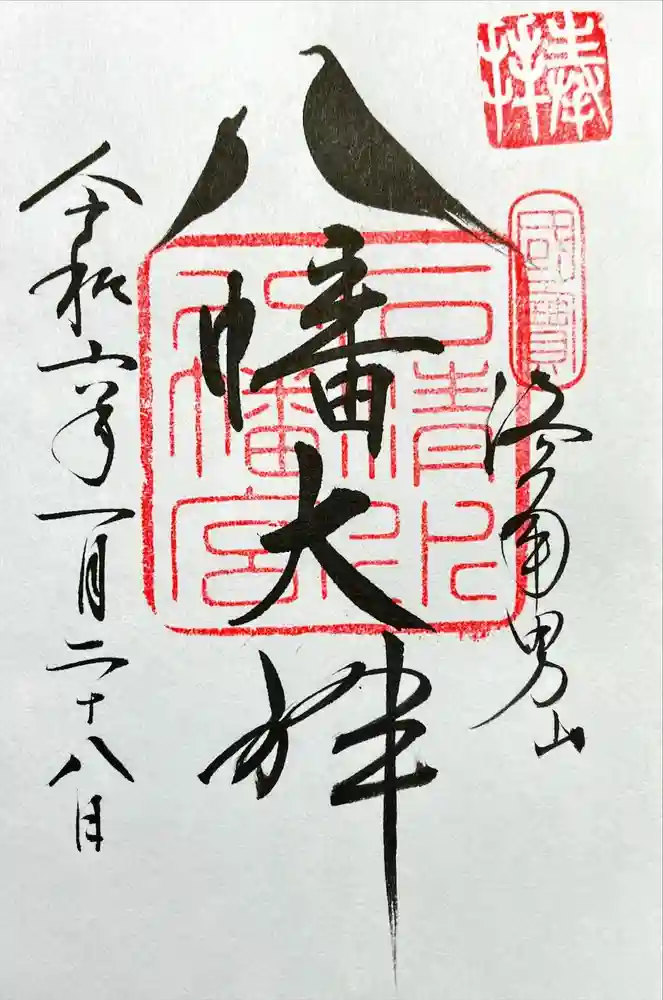 奉拝
國寶
洛南男山
八幡大神
石清水八幡宮
令和六年一月二十八日